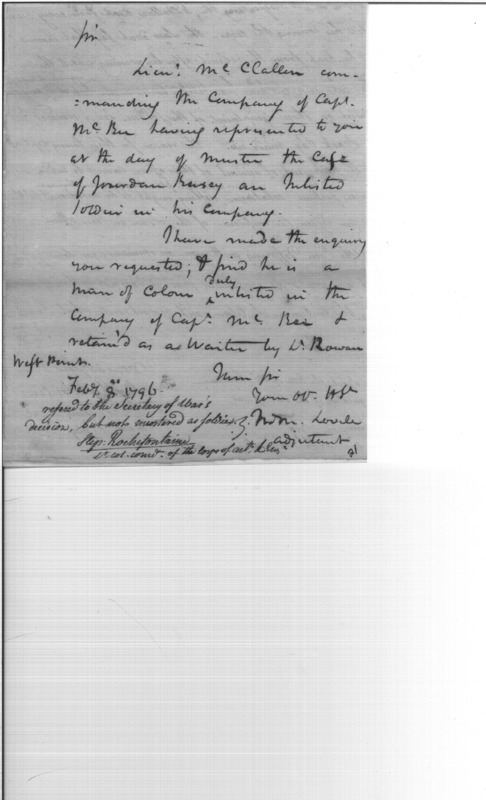 Sir
Lieut. Mc Clallen com-
=manding the Company of Capt.
Mc. Bee having represented to you
at the day of muster the Case
of Jourdan Kersey an Inlisted
soldier in his Company.
I have made the enquiry
you requested; & find he is a
Man of Colour duly inlisted in the
Company of Capt. Mc. Bee &
retain'd as a Waiter by Dr. Rowan
I am Sir
West Point.
Feby. 8th 1796.
Your Ob. H St
refered to the Secretary of War's
decision, but not mustered as soldier.
Lovell
adjutant
Step: Rochefontaine
Lt. col. comdt. of the corps of art. & Eng.